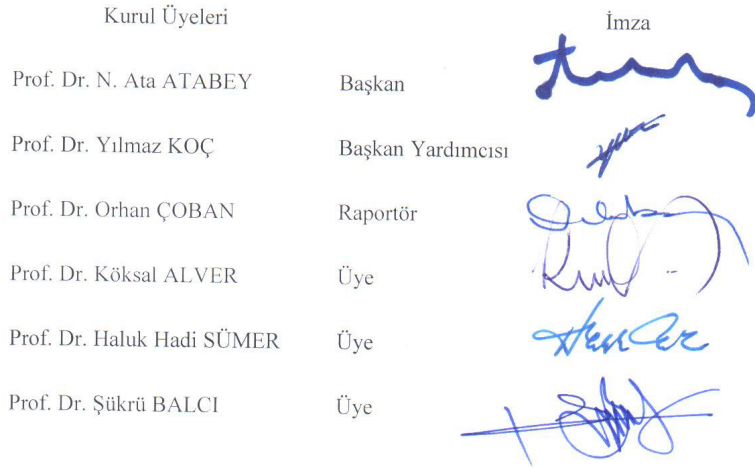 Kurul Üyeleri İmza
Prof. Dr. N. Ata ATABEY Başkan
Prof. Dr. Yılmaz KOÇ Başkan Yardımcısı
Prof. Dr. Orhan ÇOBAN Raportör
Prof. Dr. Köksal ALVER Üye
Prof. Dr. Haluk Hadi SÜMER Üye
Prof. Dr. Şükrü BALCI Üye